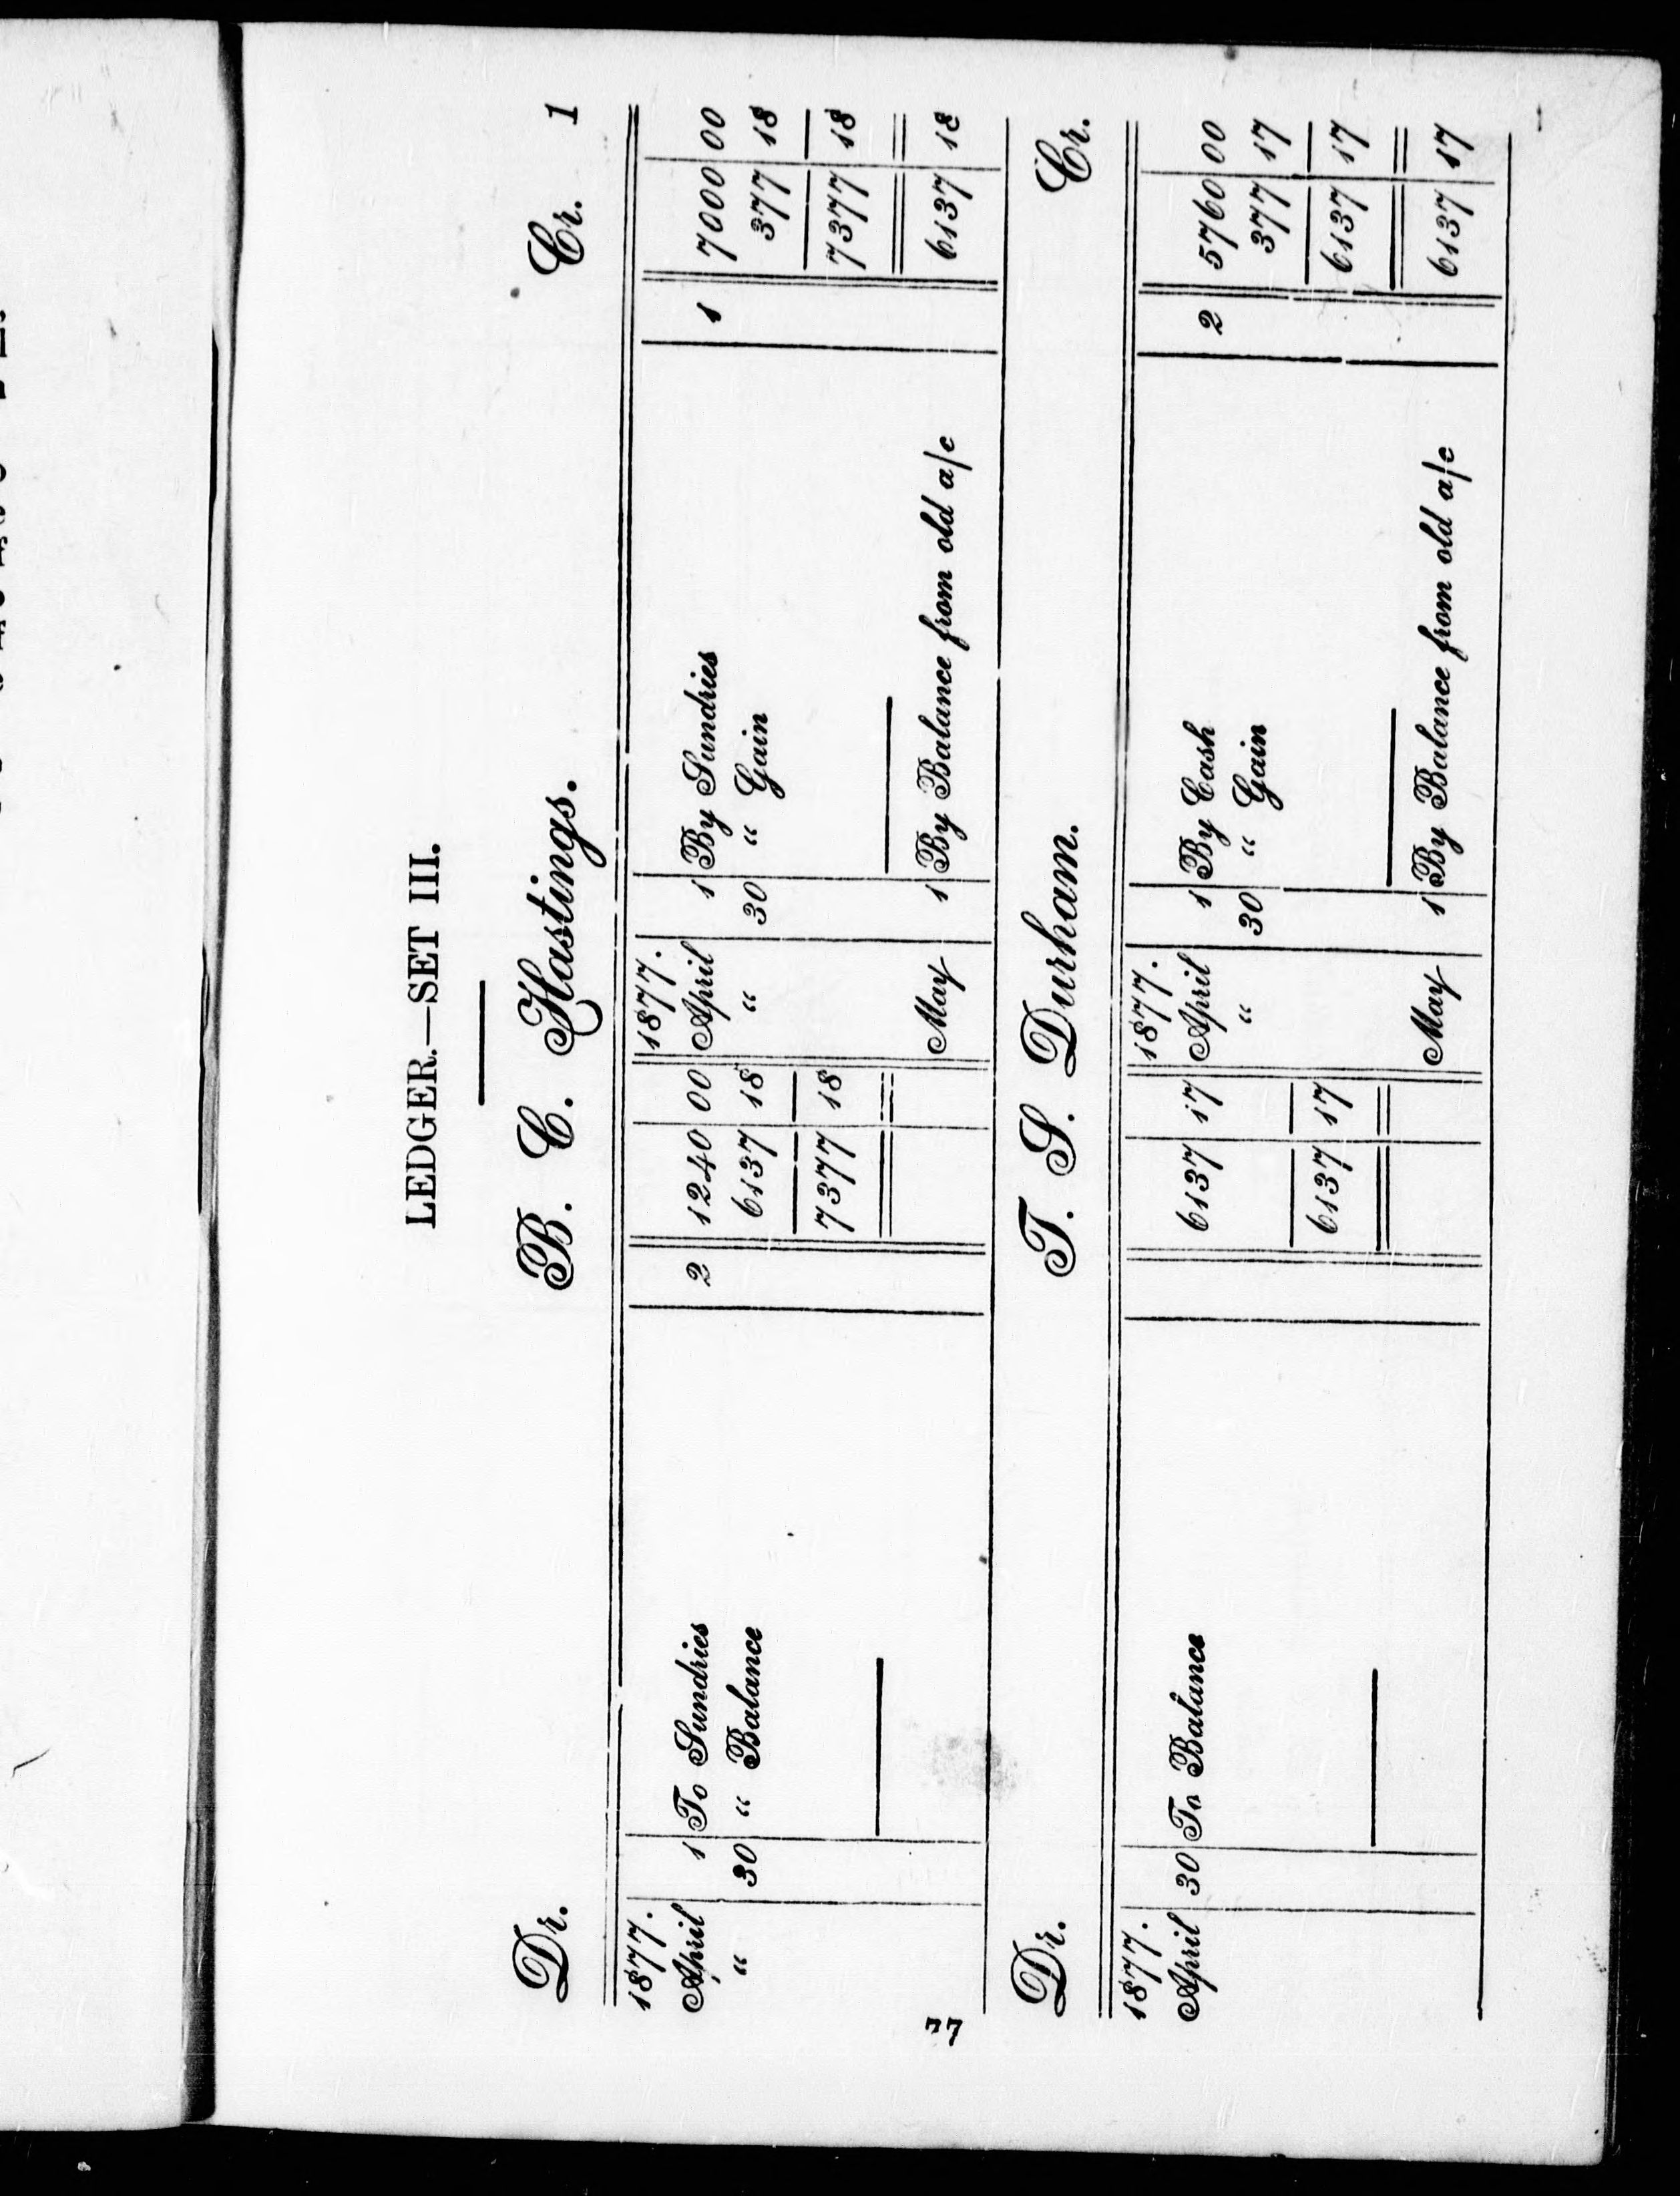 LEDGER.—SET III.
Dr. B. C. Hastings. Cr. 1
1877. 1877.
April 1 To Sundries 2 1240 00 April 1 By Sundries 1 7000 00
" 30 " Balance 6137 18 " 30 " Gain 377 18
7377 18 7377 18
May 1 By Balance from old a/c 6137 18
Dr. T. S. Durham. Cr.
1877. 1877.
April 30 To Balance 6137 17 April 1 By Cash 2 5760 00
" 30 " Gain 377 17
6137 17 6137 17
May 1 By Balance from old a/c 6137 17
77